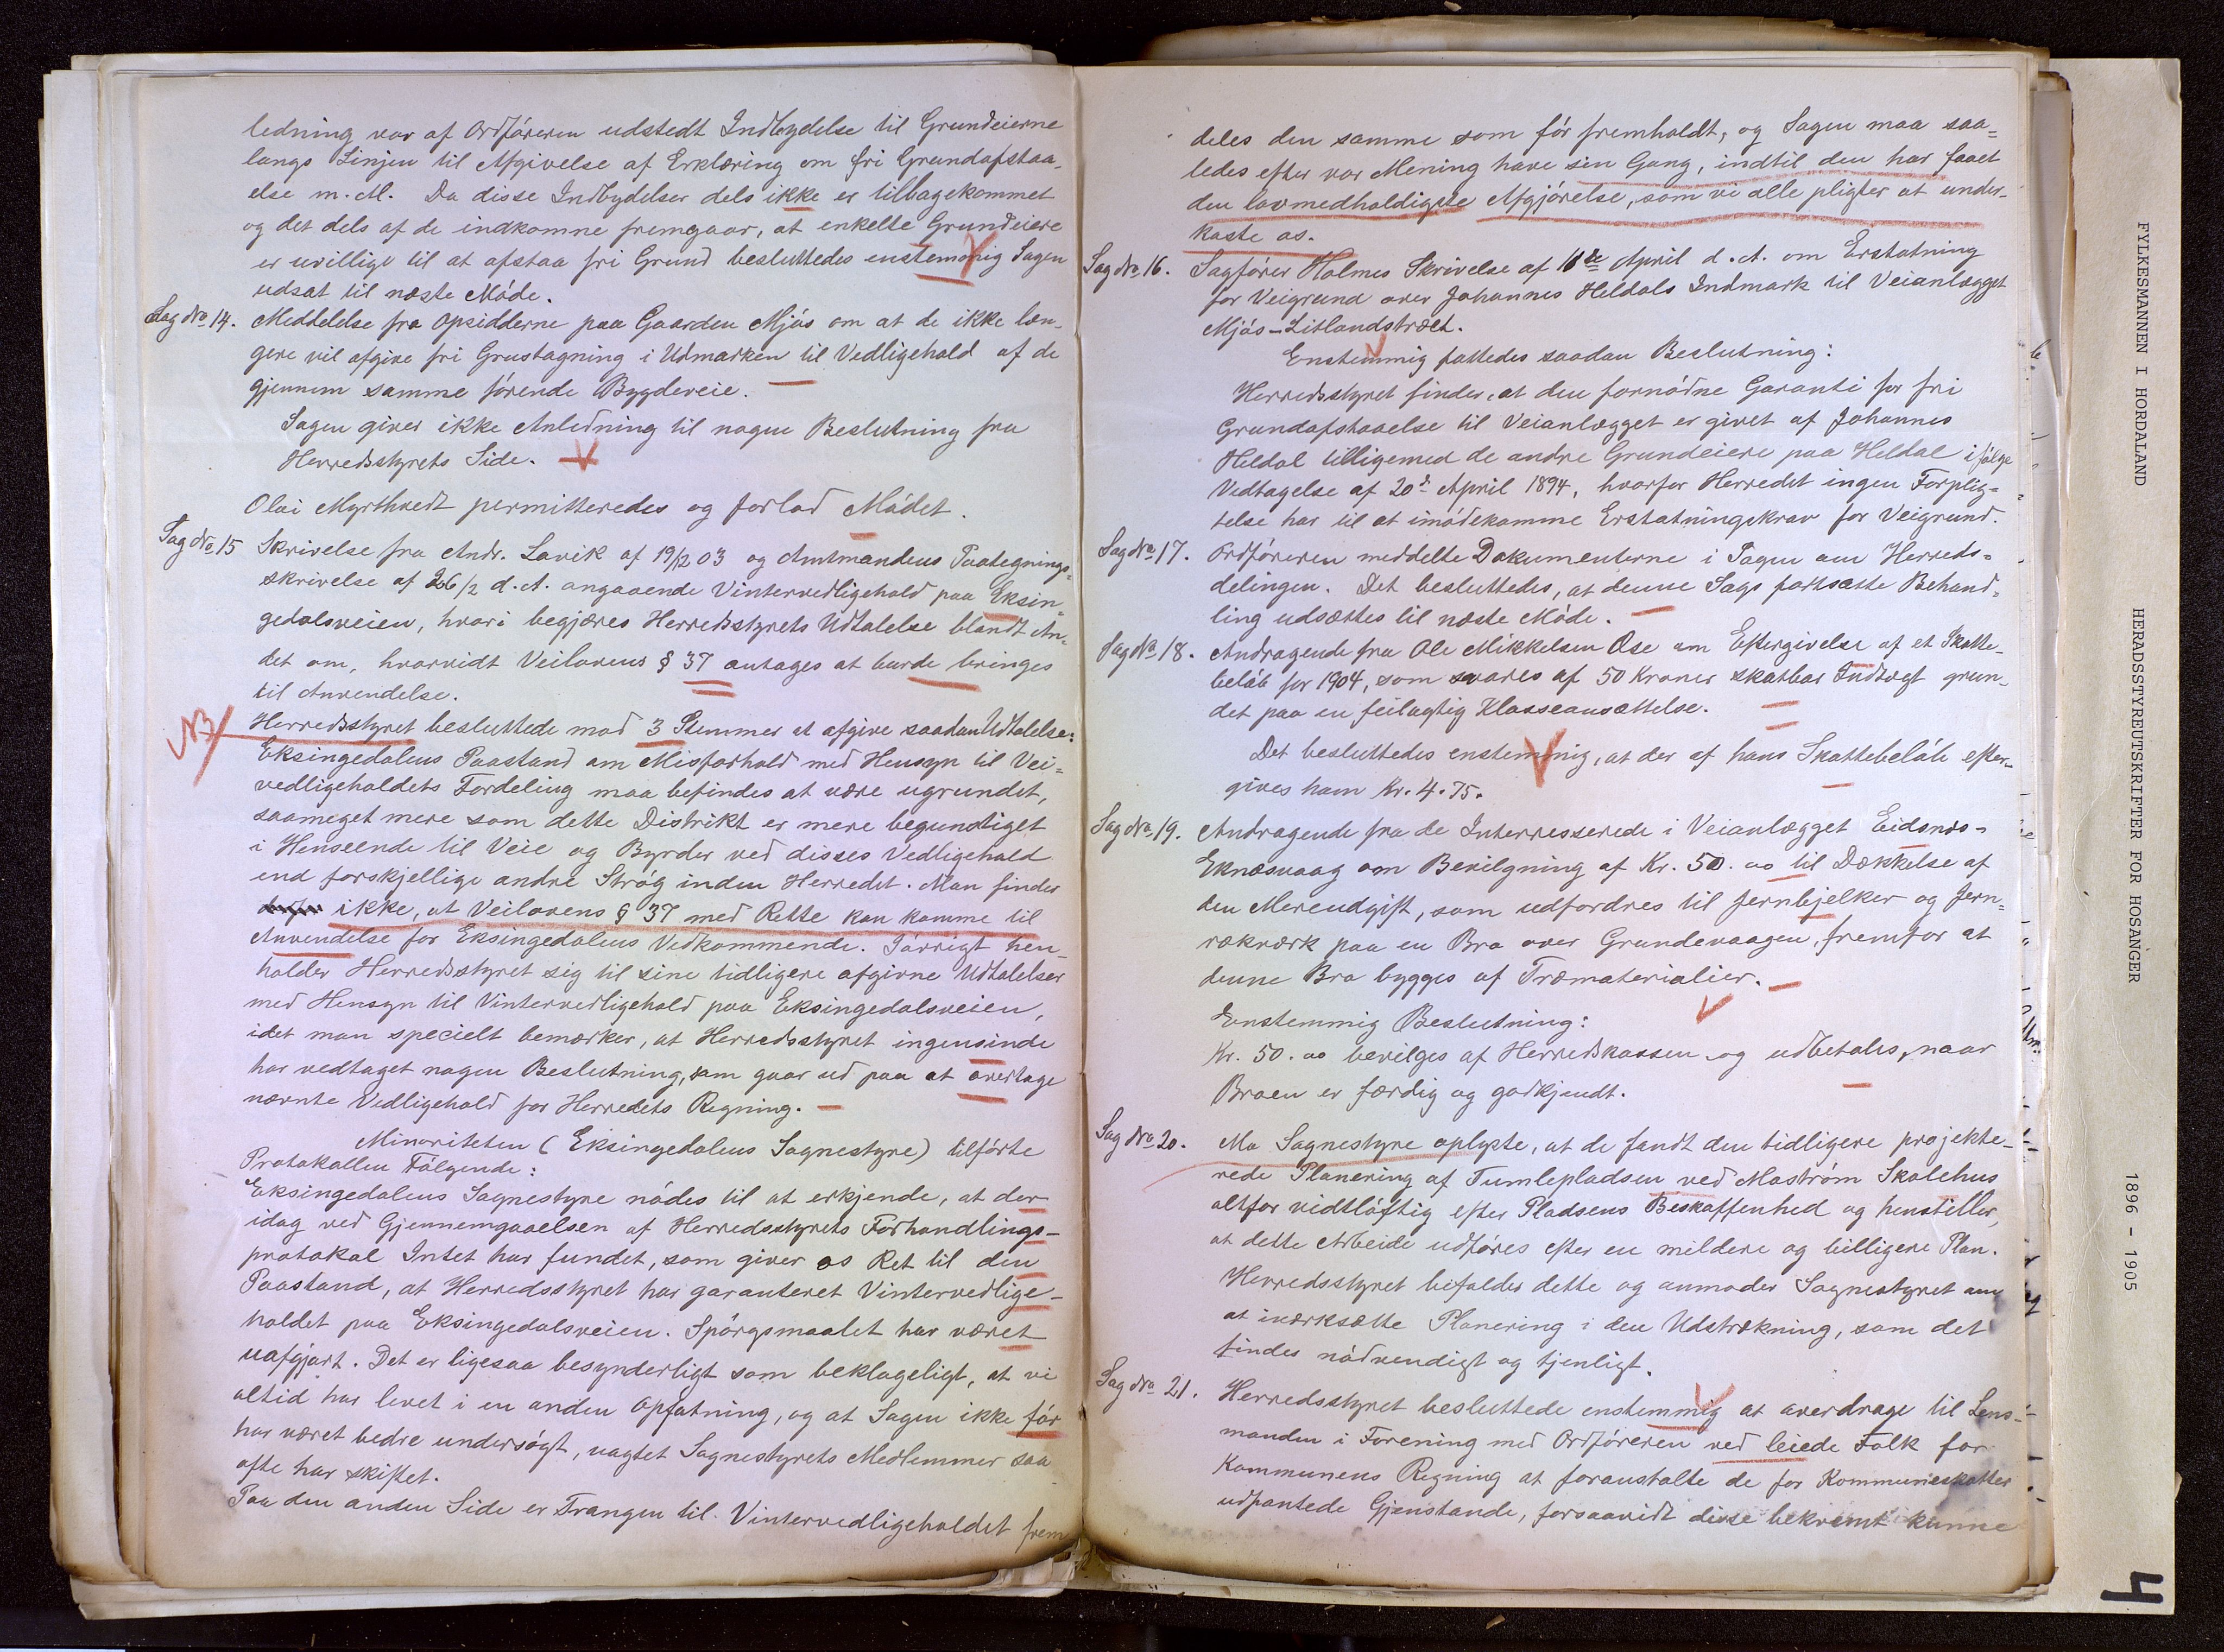 ledning var af Ordføreren udstedt Indbydelse til Grundeierne
langs Linjen til Afgivelse af Erklæring om fri Grundafstaa-
else m. M. Da disse Indbydelser dels ikke er tilbagekommet
og det dels af de indkomne fremgaar, at enkelte Grundeiere
er uvillige til at afstaa fri Grund besluttedes enstemmig Sagen
udsat til næste Møde.
Sag No 14. Meddelelse fra Opsidderne paa Gaarden Mjøs om at de ikke læn-
gere vil afgive fri Grustagning i Udmarken til Vedligehold af de
gjennem samme førende Bygdeveie.
Sagen giver ikke Anledning til nogen Beslutning fra
Herredsstyrets Side.
Olai Myrthvedt permitteredes og forlod Mødet.
Sag No 15 Skrivelse fra Andr. Lavik af 19/12 03 og Amtmandens Paategnings-
skrivelse af 26/2 d. A. angaaende Vintervedligehold paa Eksin-
gedalsveien, hvori begjæres Herredsstyrets Udtalelse blandt An-
det om, hvorvidt Veilovens § 37 antages at burde bringes
til Anvendelse.
NB Herredsstyret besluttede mod 3 Stemmer at afgive saadan Udtalelse:
Eksingedalens Paastand om Misforhold med Hensyn til Vei-
vedligeholdets Fordeling maa befindes at være ugrundet,
saameget mere som dette Distrikt er mere begunstiget
i Henseende til Veie og Byrder ved disses Vedligehold
end forskjellige andre Strøg inden Herredet. Man finder
ikke, at Veilovens § 37 med Rette kan komme til
Anvendelse for Eksingedalens Vedkommende. Iøvrigt hen-
holder Herredsstyret sig til sine tidligere afgivne Udtalelser
med Hensyn til Vintervedligehold paa Eksingedalsveien,
idet man specielt bemærker, at Herredsstyret ingensinde
har vedtaget nogen Beslutning, som gaar ud paa at overtage
nævnte Vedligehold for Herredets Regning.
Minoriteten (Eksingedalens Sognestyre) tilførte
Protokollen Følgende:
Eksingedalens Sognestyre nødes til at erkjende, at der
idag ved Gjennemgaaelsen af Herredsstyrets Forhandlings-
protokol Intet har fundet, som giver os Ret til den
Paastand, at Herredsstyret har garanteret Vintervedlige-
holdet paa Eksingedalsveien. Spørgsmaalet har været
uafgjort. Det er ligesaa besynderligt som beklageligt, at vi
altid har levet i en anden Opfatning, og at Sagen ikke før
har været bedre undersøgt, uagtet Sognestyrets Medlemmer saa
ofte har skiftet.
Paa den anden Side er Trangen til Vintervedligeholdet frem
deles den samme som før fremholdt, og Sagen maa saa-
ledes efter vor Mening have sin Gang, indtil den har faaet
den lovmedholdigste Afgjørelse, som vi alle pligter at under-
kaste os.
Sag No 16. Sagfører Holmes Skrivelse af 18de April d. A. om Erstatning
for Veigrund over Johannes Heldals Indmark til Veianlægget
Mjøs-Litlandstræet.
Enstemmig fattedes saadan Beslutning:
Herredsstyret finder, at den fornødne Garanti for fri
Grundafstaaelse til Veianlægget er givet af Johannes
Heldal tilligemed de andre Grundeiere paa Heldal ifølge
Vedtagelse af 20de April 1894, hvorfor Herredet ingen Forplig-
telse har til at imødekomme Erstatningskrav for Veigrund.
Sag No 17. Ordføreren meddelte Dokumenterne i Sagen om Herreds-
delingen. Det besluttedes, at denne Sags fortsatte Behand-
ling udsættes til næste Møde.
Sag No 18. Andragende fra Ole Mikkelsen Øse om Eftergivelse af et Skatte-
beløb for 1904, som svares af 50 Kroner skatbar Indtægt grun-
det paa en feilagtig Klasseansættelse.
Det besluttedes enstemmig, at der af hans Skattebeløb efter-
gives ham Kr. 4.75.
Sag No 19. Andragende fra de Interresserede i Veianlægget Eidsnes-
Eknæsvaag om Bevilgning af Kr. 50.00 til Dækkelse af
den Merendgift, som udfordres til Jernbjelker og Jern-
rækværk paa en Bro over Grundevaagen, fremfor at
denne Bro bygges af Træmaterialier.
Enstemmig Beslutning:
Kr. 50.00 bevilges af Herredskassen og udbetales, naar
Broen er færdig og godkjendt.
Sag No 20. Mo Sognestyre oplyste, at de fandt den tidligere projekte-
rede Planering af Tumlepladsen ved Mostrøm Skolehus
altfor vidtløftig efter Pladsens Beskaffenhed og henstiller,
at dette Arbeide udføres efter en mildere og billigere Plan.
Herredsstyret bifalder dette og anmoder Sognestyret om
at iværksætte Planering i den Udstrækning, som det
findes nødvendigt og tjenligt.
Sag No 21. Herredsstyret besluttede enstemmig at overdrage til Lens-
manden i Forening med Ordføreren ved leiede Folk for
Kommunens Regning at foranstalte de for Kommuneskatter
udpantede Gjenstande, forsaavidt disse bekvemt kunne
FYLKESMANNEN I HORDALAND HERADSSTYREUTSKRIFTER FOR HOSANGER 1896 - 1905
4